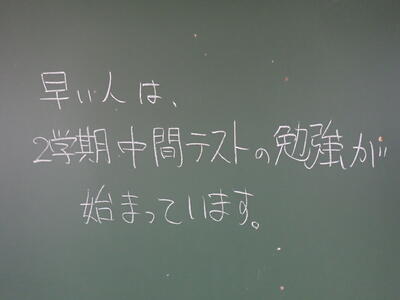 早い人は、
2学期中間テストの勉強が
始まっています。